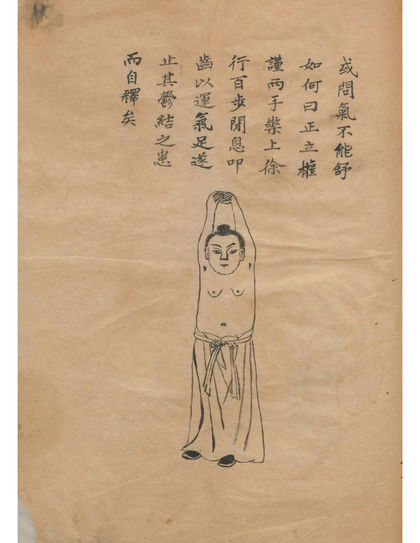 或問氣不能舒
如何曰正立權
謹兩手擧上徐
行百步閉息叩
齒以運氣足遂
止其鬱結之患
而自釋矣